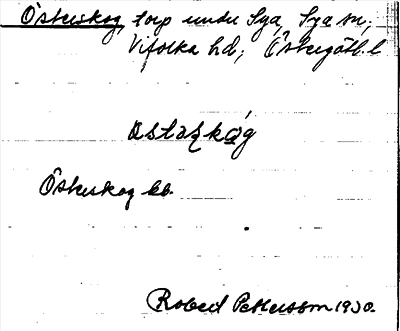 Österskog, torp under Sya, Sya sn,
Vifolka hd; Östergötl. l
ɷstaʂkǡg
Österskog kb.
Robert Pettersson 1930.